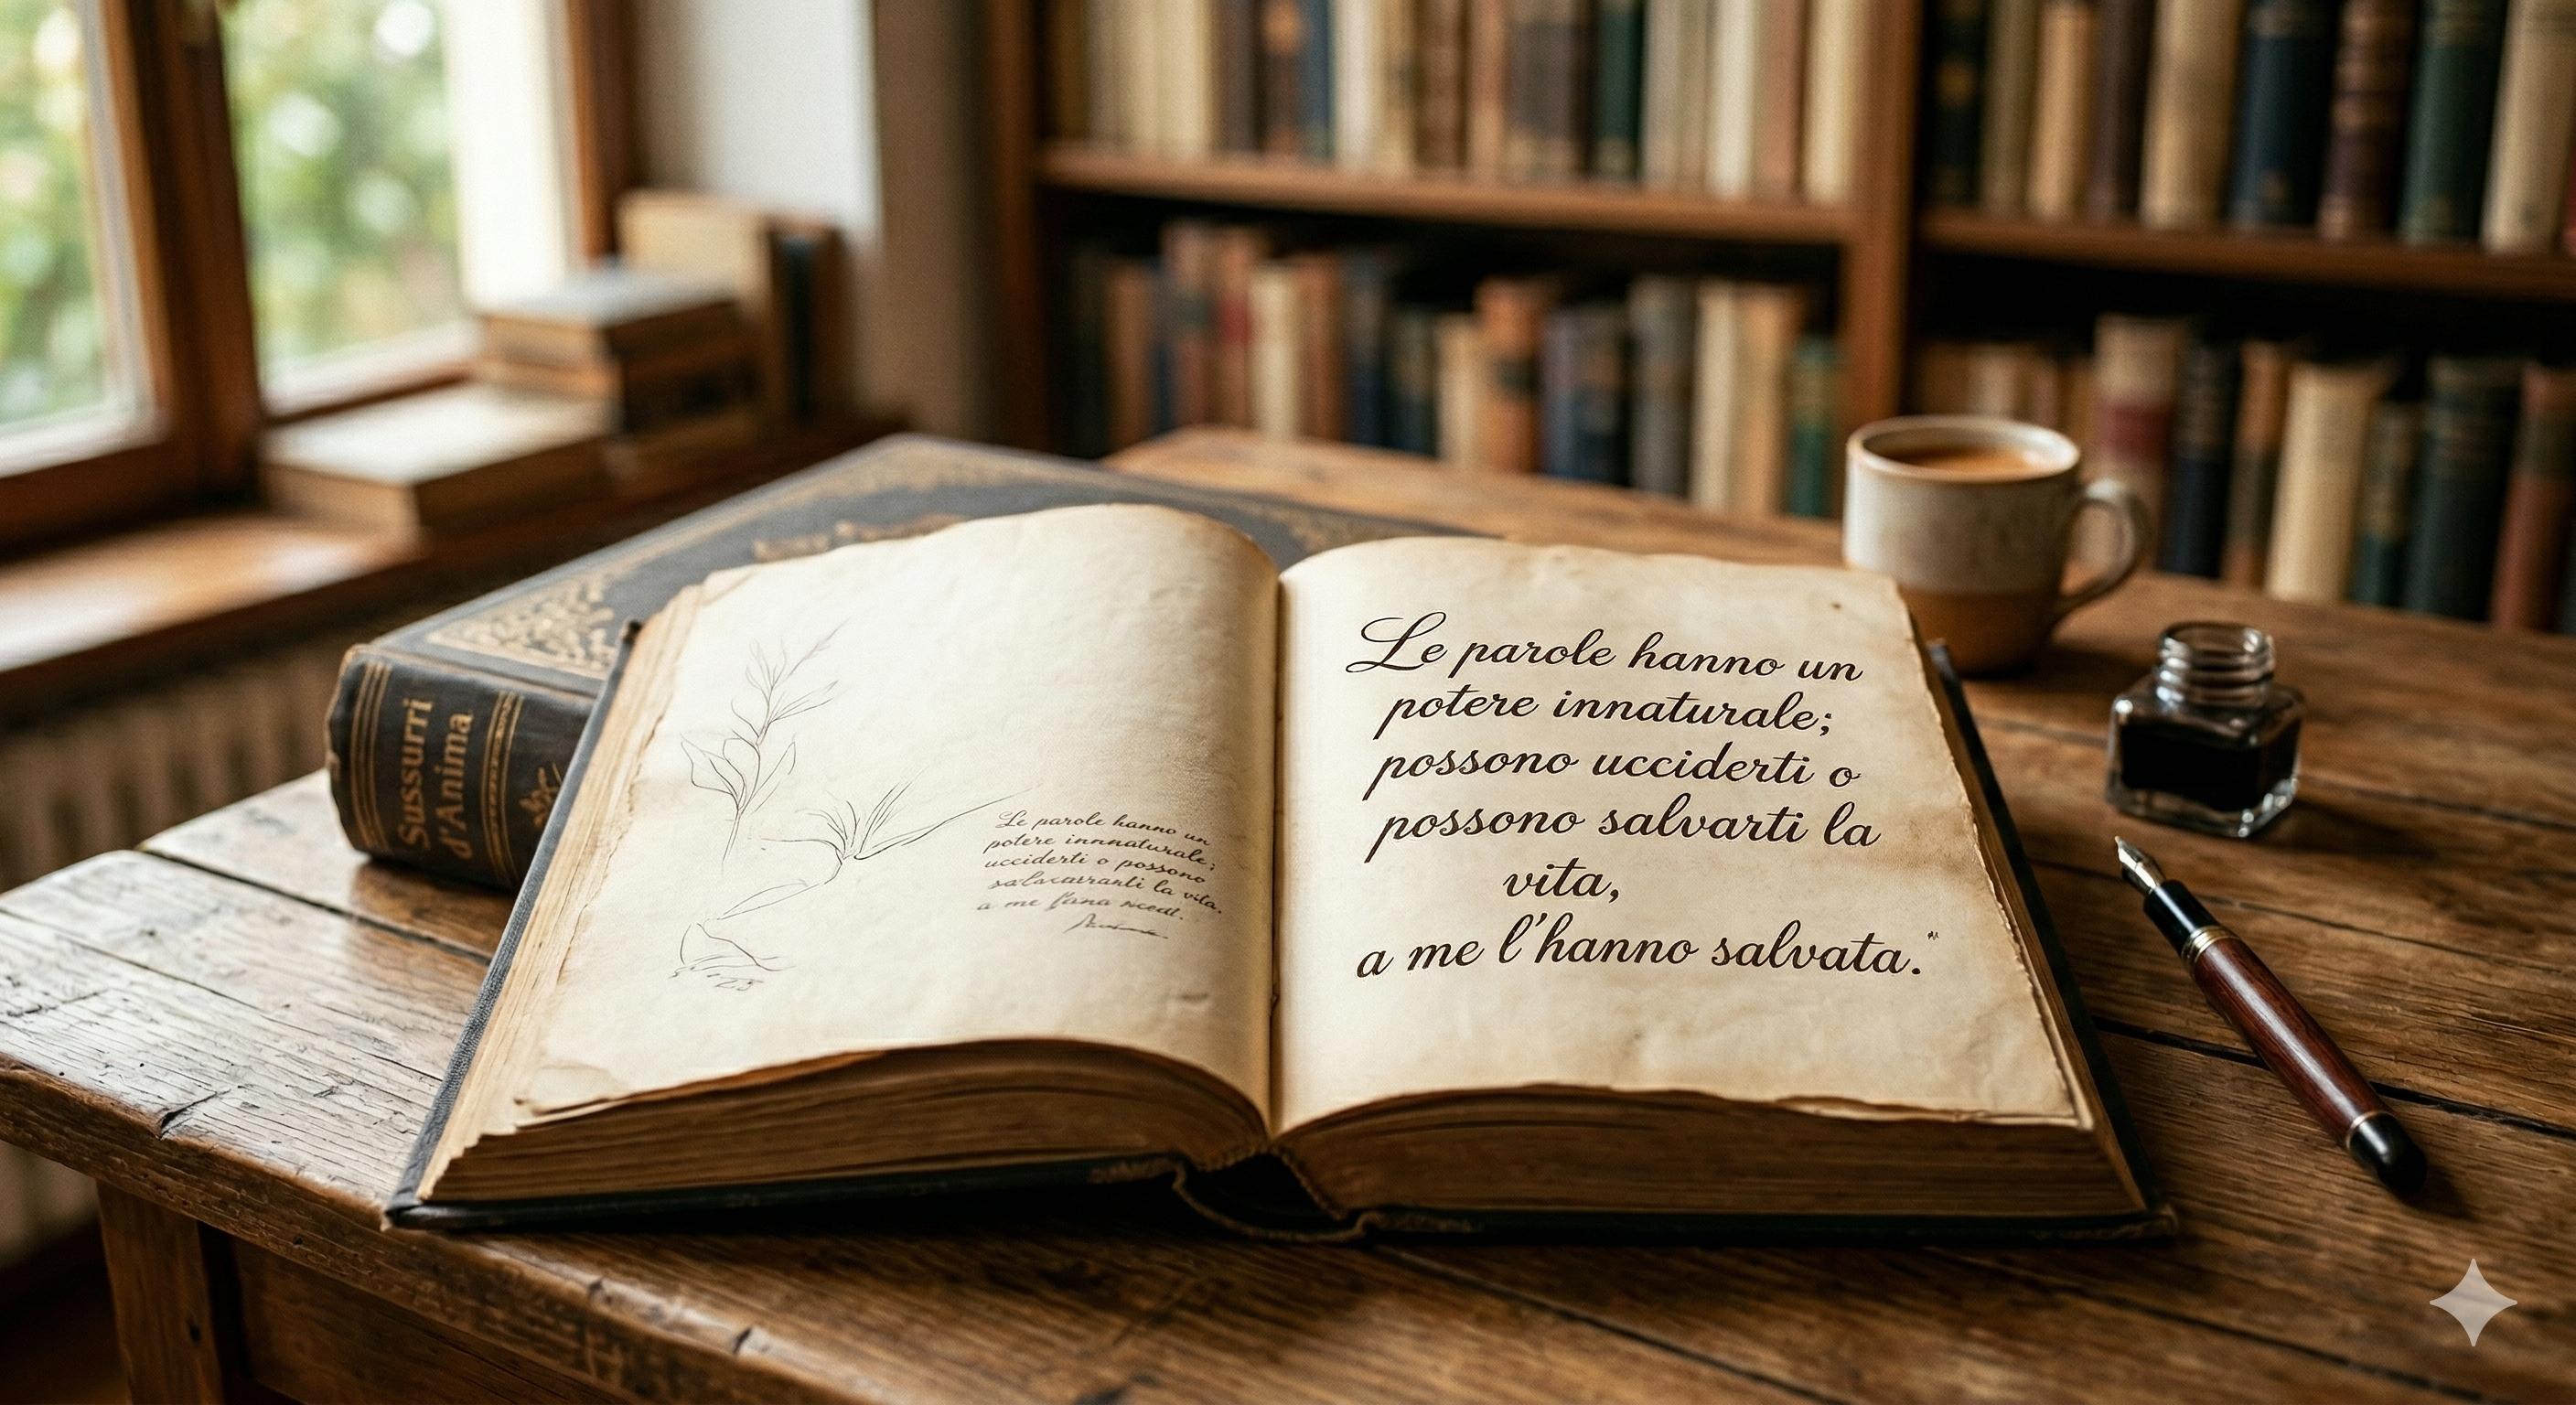 Sussurri
d'Anima
Le parole hanno un
potere innnaturale;
ucciderti o possono
la vita.
a me
Le parole hanno un
potere innaturale;
possono ucciderti o
possono salvarti la
vita,
a me l'hanno salvata."